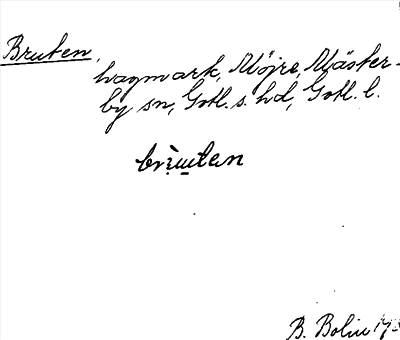 Bruten,
hagmark, Möjre, Mäster-
by sn, Gotl. s. hd, Gotl. l.
B. Bolin